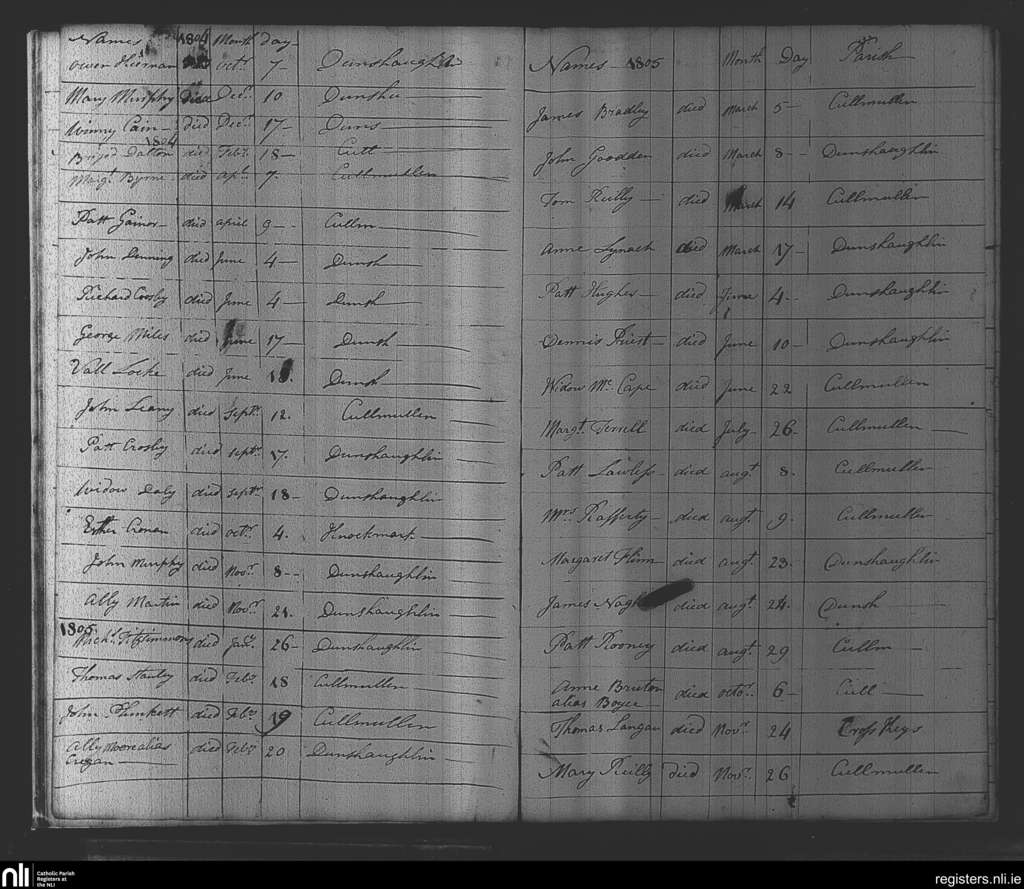 Names 1804 Month day
Owen Hiernan Octr. 7 Dunshaughlin
Mary Murphy Died Decr. 10 Dunsha
Winny Cain died Decr. 17 Duns
1804
Brigid Dalton died Febr. 18 Cull
Margt. Byrne died apl. 7. Cullmullen
Patt Gainor died april 9 Cullm
John Denning died June 4 Dunsh
Richard Crosby died June 4 Dunsh
George Miles died June 17 Dunsh
Vall Locke died June Dunsh
John Leany died Septr. 12. Cullmullen
Patt Crosby died Septr. 17. Dunshaughlin
Widow Daly died Septr. 18 Dunshaughlin
Esther Cronan died octr. 4. Knockmark
John Murphy died Novr. 8 Dunshaughlin
Ally Martin died Novr. 21. Dunshaughlin
1805
Michl. Fitzsimmons died Jany. 26 Dunshaughlin
Thomas Hanly died Feby. 18 Cullmullen
John Plunkett died Feby. 19 Cullmullen
Ally Moore alias died Feby. 20 Dunshaughlin
Cregan
Names 1805 Month Day Parish
James Bradly died March 5 Cullmullen
John Goodden died March 8 Dunshaughlin
Tom Reilly died March 14 Cullmullen
Anne Lynach died March 17 Dunshaughlin
Patt Hughes died June 4 Dunshaughlin
Dennis Priest died June 10 Dunshaughlin
Widow Mc. Cape died June 22 Cullmullen
Margt. Terrell died July 26 Cullmullen
Patt Lawless died augt. 8. Cullmullen
Mrs. Rafferty died augt. 9. Cullmullen
Margaret Flinn died augt. 23. Dunshaughlin
James died augt. 24. Dunsh
Patt Rooney died augt. 29 Cullm
Anne Bruton died octor. 6 Cull
alias Boyce
Thomas Langan died Novr. 24 Cross Keys
Mary Reilly died Novr. 26 Cullmullen
nli Catholic Parish
Registers at
the NLI
registers.nli.ie